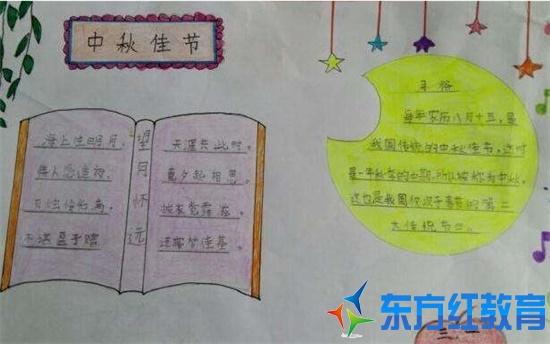 中秋佳节
望月怀远
海上生明月,
情人怨遥夜,
不堪盈手赠
天涯共此时。
竟夕起相思。
披衣觉露滋。
还寝梦佳期。
习俗
每年农历八月十五,是
我国传统的中秋佳节,这时
是一年秋季的中期,所以被称为中秋。
这也是我国仅次于春节的第二
大传统节日。
东方红教育